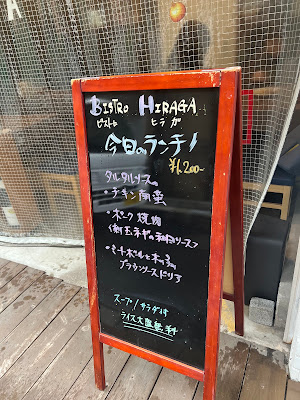 BISTRO HIRAGA
ビストロ ヒラガ
今日のランチ!
¥1,200-
タルタルソース
・チキン南蛮
・ポーク焼肉
(新玉ネギの和風ソース)
・ミートボールときのこの
ブラウンソースドリア
スープ/サラダ付
ライス大盛無料